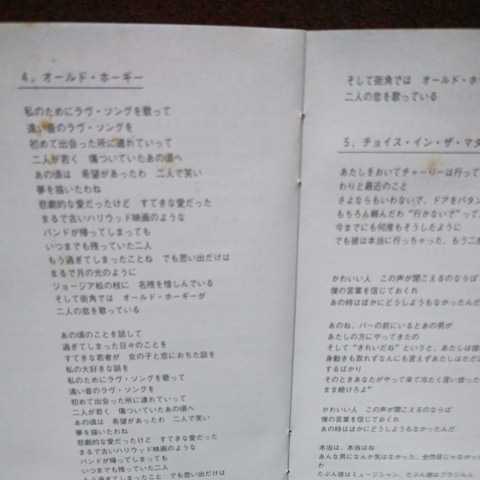 4．オールド・ホーギー
私のためにラヴ・ソングを歌って
遠い昔のラヴ・ソングを
初めて出会った所に連れていって
二人が若く　傷ついていたあの頃へ
あの頃は　希望があったわ　二人で笑い
夢を描いたわね
悲劇的な愛だったけど　すてきな愛だった
まるで古いハリウッド映画のような
バンドが帰ってしまっても
いつまでも残っていた二人
もう過ぎてしまったことね　でも思い出だけは
まるで月の光のように
ジョージア松の枝に　名残を惜しんでいる
そして街角では　オールド・ホーギーが
二人の恋を歌っている
あの頃のことを話して
過ぎてしまった日々のことを
すてきな若者が　女の子と恋におちた話を
私の大好きな話を
私のためにラヴ・ソングを歌って
遠い昔のラヴ・ソングを
初めて出会った所に連れていって
二人が若く　傷ついていたあの頃へ
あの頃は　希望があったわ　二人で笑い
夢を描いたわね
悲劇的な愛だったけど　すてきな愛だった
まるで古いハリウッド映画のような
バンドが帰ってしまっても
いつまでも残っていた二人
もう過ぎてしまったことね　でも思い出だけは
そして街角では　オールド・ホ
二人の恋を歌っている
5．チョイス・イン・ザ・マタ
あたしをおいてチャーリーは行って
わりと最近のこと
さよならもいわないで、ドアをバタン
もちろん頼んだわ “行かないで”って
今までにも何度もそうしたように
でも彼は本当に行っちゃった、もう二度
かわいい人　この声が聞こえるのならば
僕の言葉を信じておくれ
あの時はほかにどうしようもなかったんだ
あのね、バーの前にいるとあの男が
あたしの方にやってきたの
そして “きれいだね” というと、あたしは
身動きも取れずなんにも言えずあたしはただ
するばかり
そのときあなたがやって来て冷たく言い放った
まま続けろよ”
かわいい人　この声が聞こえるのならば
僕の言葉を信じておくれ
あの時はほかにどうしようもなかったんだ
本当は、本当はね
あんな男になんか気はなかった、全然
わ
たぶん彼はミュージシャン、たぶん彼は